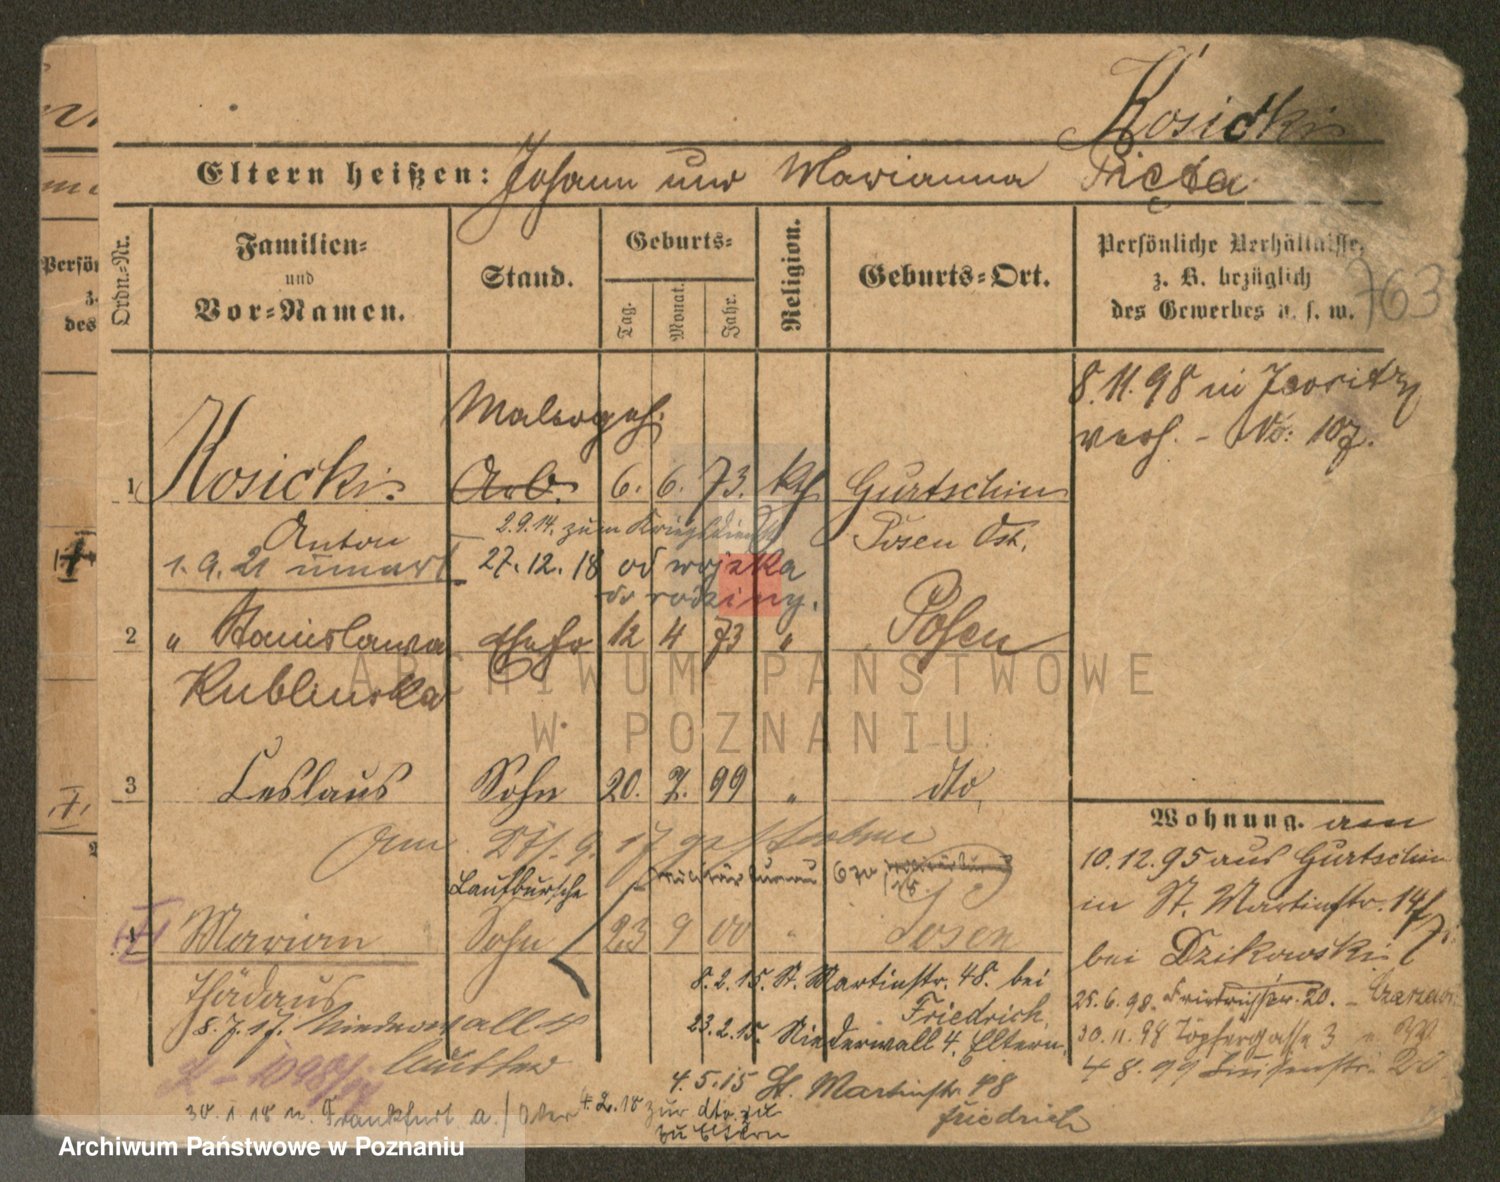 Kosicki
Eltern heißen: Johann und Marianna Pięta
Ordn.-Nr.
Familien-
und
Vor-Namen.
Stand.
Geburts-
Tag.
Monat.
Jahr.
Religion.
Geburts-Ort.
Persönliche Verhältnisse,
z. B. bezüglich
des Gewerbes u. s. w.
763
8.11.98 in Jersitz
verh. - No: 107.
Malergeh.
1 Kosicki Arb. 6. 6. 73. kth Gurtschin
Anton 2.9.14. zum Kriegsdienst Posen Ost.
1. 9. 21 27.12.18 od wojska
do rodziny.
2 " Stanislawa Ehefr 12 4 73 " Posen
Kublinska
3 Leslaus Sohn 20. 7. 99 " dto
am 9. 17 gestorben
Laufbursche
4 Marian Sohn 23 9 00 " Posen
Thädäus
8.7.17. Niederwall 4
8.2.15. St. Martinstr. 48. bei
Friedrich.
23.2.15. Niederwall 4. Eltern.
4.5.15 St. Martinstr 48
Friedrich
30.1.18 n. Frankfurt a./Oder 4.2.18 zur dto zu
zu Eltern
Wohnung. am
10.12.95 aus Gurtschin
in St. Martinstr. 14
bei Dzikowski
25.6.98. 20.
30.11.98 Töpfergasse 3
4 8.99 Luisenstr. 20
Persön
z.
des
ARCHIWUM PAŃSTWOWE
W POZNANIU
Archiwum Państwowe w Poznaniu